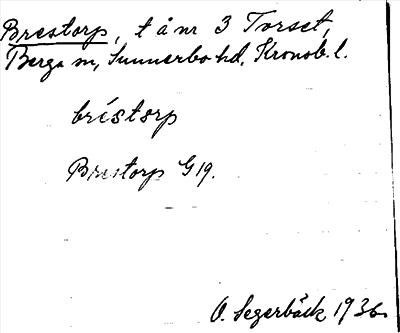 Brestorp, t å nr 3 Torset,
Berga sn, Sunnerbo hd, Kronob. l.
bréstorp
Brestorp G 19.
O. Segerbäck 1936.